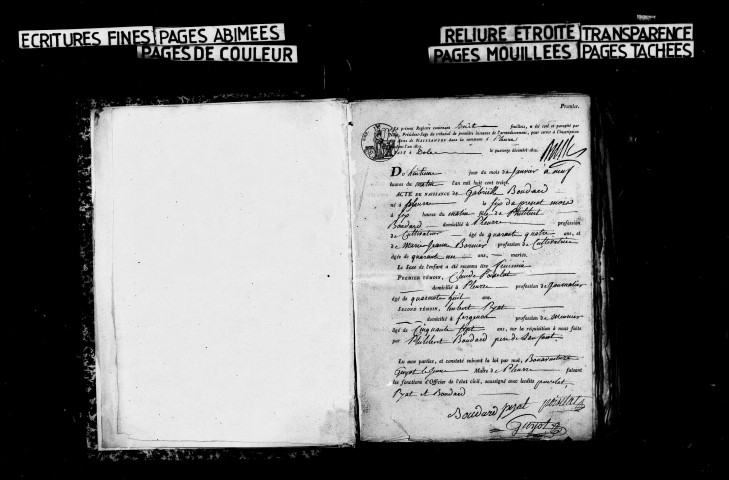 ECRITURES FINES
PAGES ABIMEES
PAGES DE COULEUR
RELIURE ETROITE
TRANSPARENCE
PAGES MOUILLEES
PAGES TACHEES
Premier.
Le présent Registre contenant huit feuillets, a été coté et paraphé par
Président-Juge du tribunal de première instance de l'arrondissement, pour servir à l'inscription
Actes de NAISSANCES dans la commune d Pleure
pendant l'an 1813.
FAIT à Dole le quatorze décembre 1812.
Du huitieme jour du mois de Janvier à neuf
heures du matin l'an mil huit cent treize.
ACTE DE NAISSANCE de Gabrielle Boudard
né à pleurre le six du present mois
à six heures du matin fille de Philibert
Boudard domicilié à Pleurre profession
de Cultivateur âgé de quarante quatre ans, et
de Marie Jeanne Bornier profession de Cultivatrice
âgée de quarante un ans, mariés.
Le sexe de l'enfant a été reconnu être feminin
PREMIER TÉMOIN, Claude Poisclat
domicilié à Pleurre profession de Journalier
âgé de quarante huit ans.
SECOND TÉMOIN, humbert Pyat
domicilié à profession de meunier
âgé de Cinquante sept ans, sur la réquisition à nous faite
par Philibert Boudard pere de l'enfant.
Lu aux parties, et constaté suivant la loi par moi, Bonaventure
Guyot le Jeune Maire de Pleurre faisant
les fonctions d'Officier de l'état civil, soussigné avec lesdits
Pyat et Boudard
Boudard pyat
Guyot